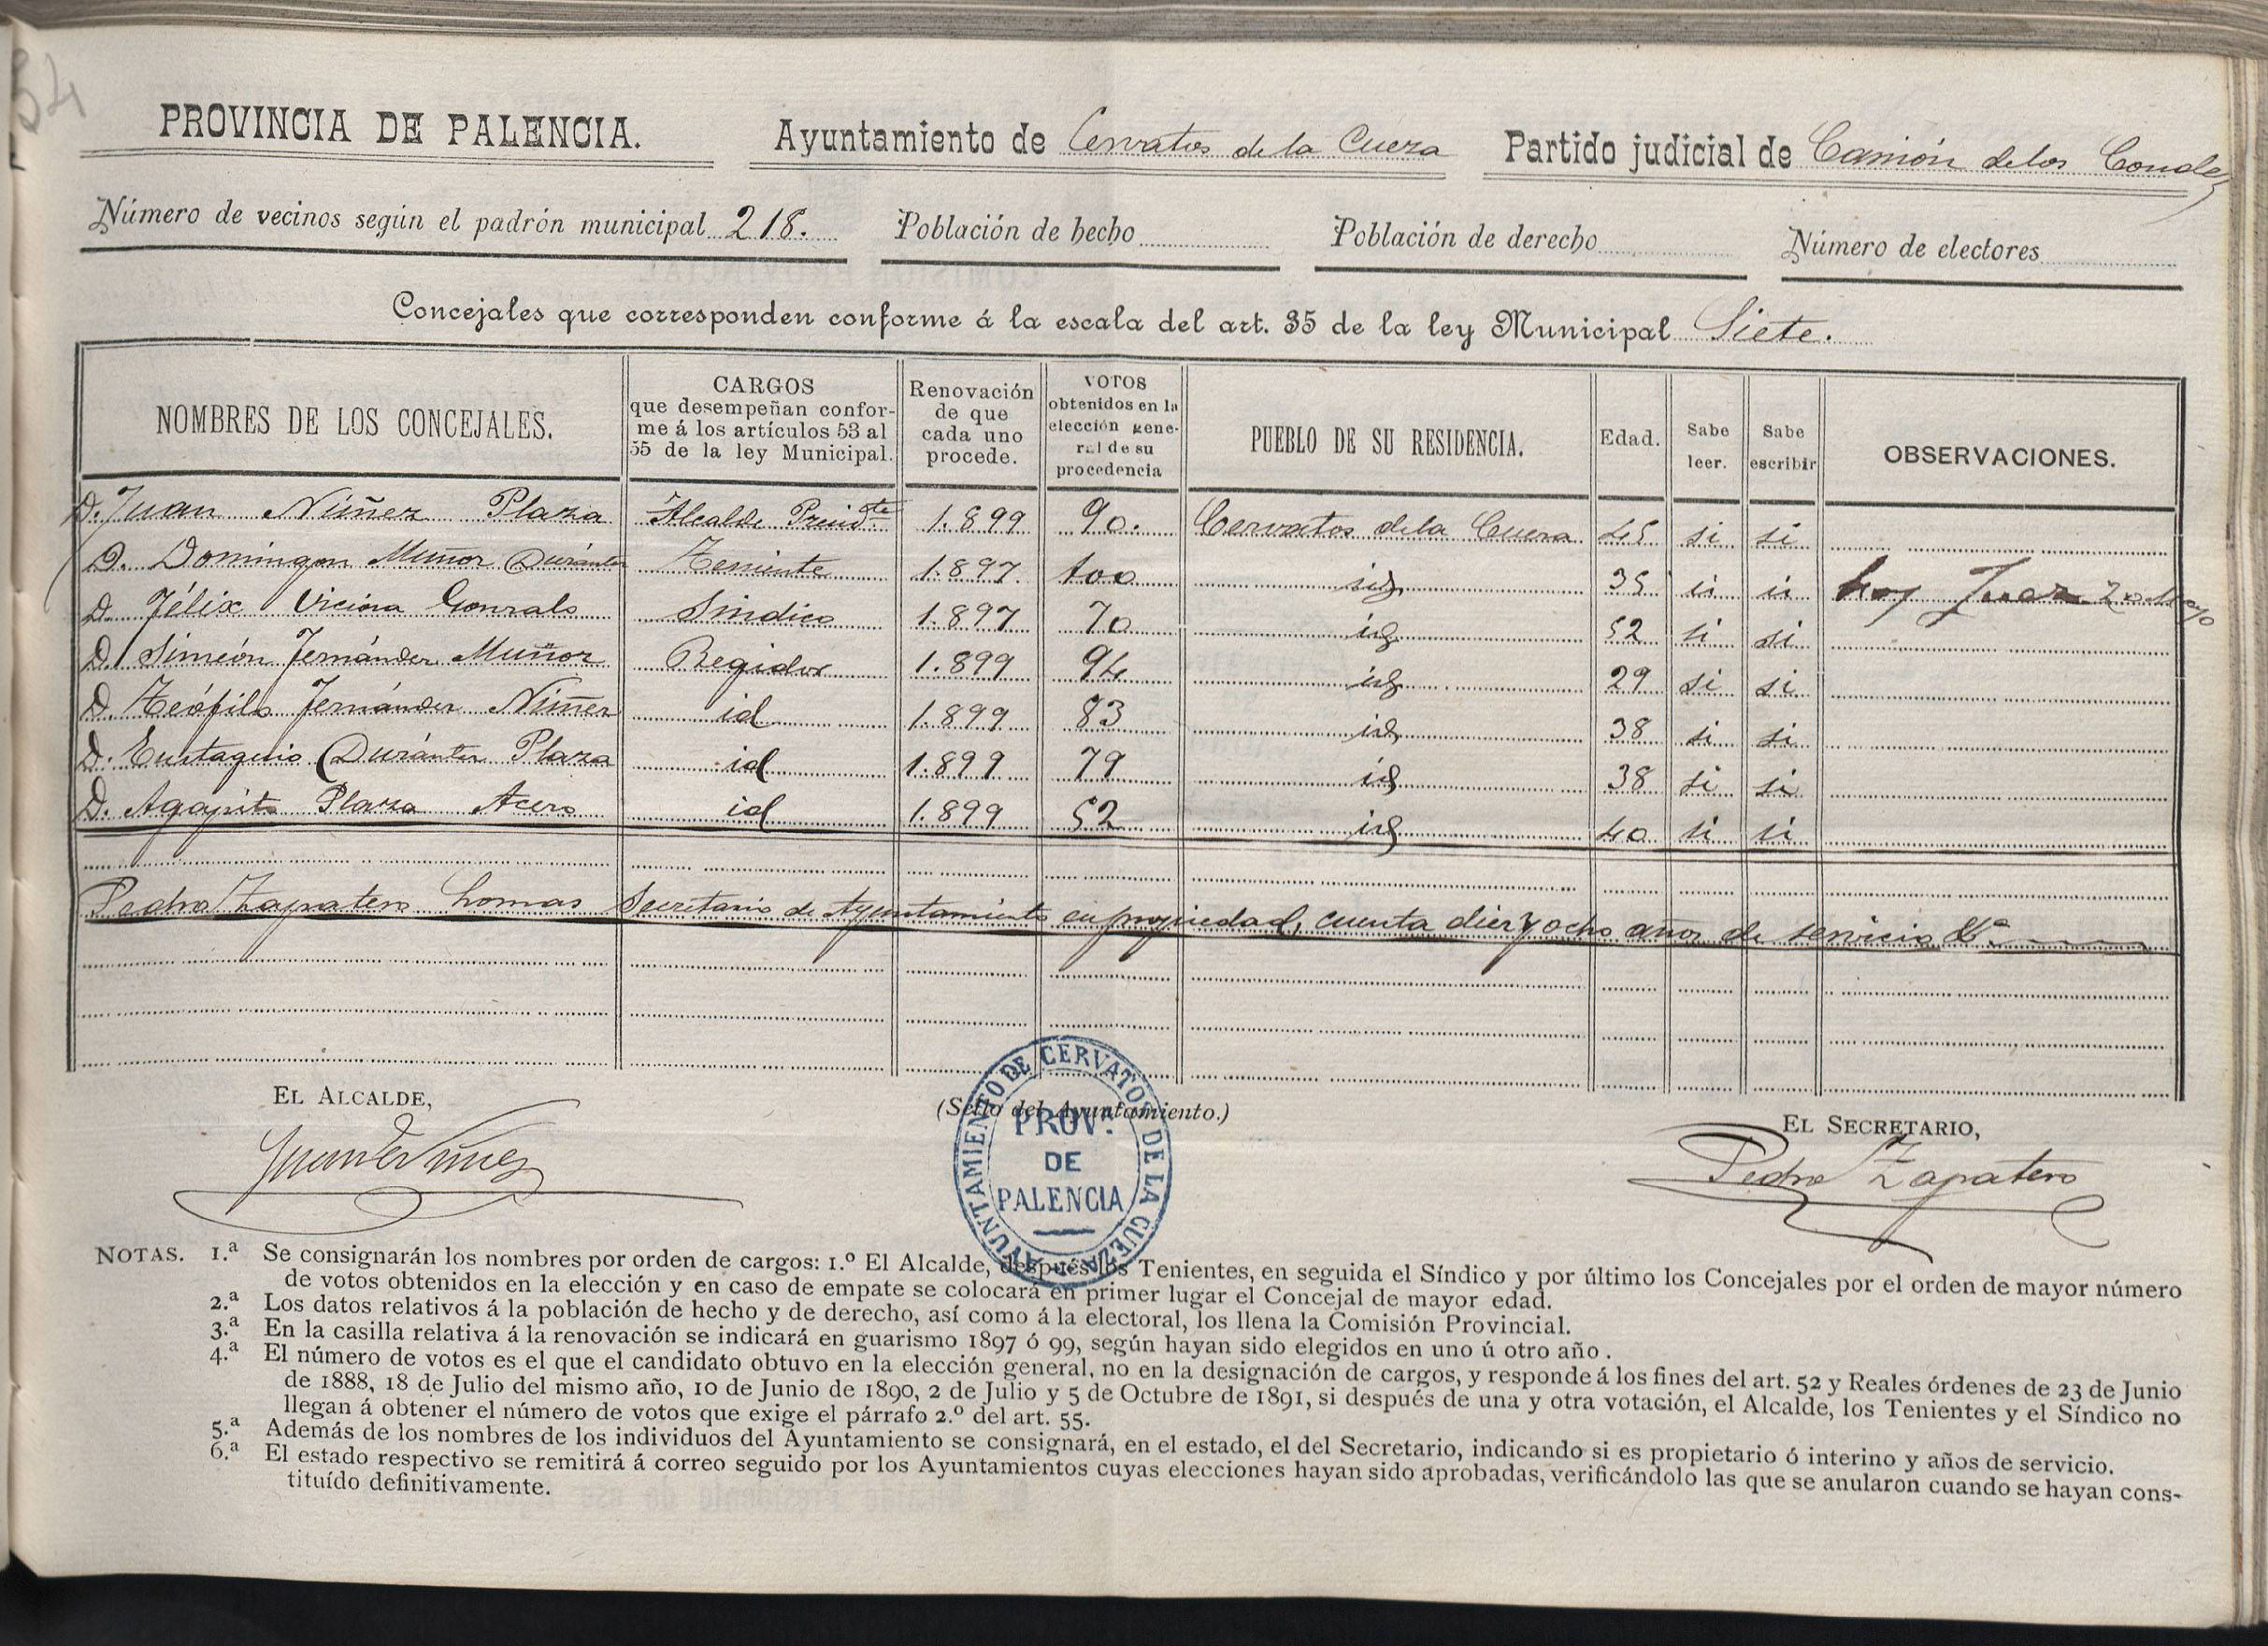 54
PROVINCIA DE PALENCIA. Ayuntamiento de Cervatos de la Cueza Partido judicial de Carrión de los Condes
Número de vecinos según el padrón municipal 218. Población de hecho Población de derecho Número de electores
Concejales que corresponden conforme á la escala del art. 35 de la ley Municipal Siete.
NOMBRES DE LOS CONCEJALES. CARGOS que desempeñan confor-me á los artículos 53 al 55 de la ley Municipal. Renovación de que cada uno procede. VOTOS obtenidos en la elección gene-ral de su procedencia PUEBLO DE SU RESIDENCIA. Edad. Sabe leer. Sabe escribir OBSERVACIONES.
D. Juan Núñez Plaza Alcalde Presidte 1.899 90. Cervatos de la Cueza 45 si si
D. Domingo Muñoz Durántez Teniente 1.897. 100 id 35 si si hoy Juez 20 Mayo
D. Félix Viciosa Gonzalo Síndico 1.897 70 id 52 si si
D. Simeón Fernández Muñoz Regidor 1.899 94 id 29 si si
D. Teófilo Fernández Núñez id 1.899 83 id 38 si si
D. Eustaquio Durántez Plaza id 1.899 79 id 38 si si
D. Agapito Plaza Acero id 1.899 52 id 40 si si
Pedro Zapatero Lomas Secretario de Ayuntamiento en propiedad, cuenta diez y ocho años de servicio
EL ALCALDE, (Sello del Ayuntamiento.) EL SECRETARIO,
Juan Núñez
Pedro Zapatero
AYUNTAMIENTO DE CERVATOS DE LA CUEZA
PROVª.
DE
PALENCIA
NOTAS. 1.ª Se consignarán los nombres por orden de cargos: 1.º El Alcalde, después los Tenientes, en seguida el Síndico y por último los Concejales por el orden de mayor número
de votos obtenidos en la elección y en caso de empate se colocará en primer lugar el Concejal de mayor edad.
2.ª Los datos relativos á la población de hecho y de derecho, así como á la electoral, los llena la Comisión Provincial.
3.ª En la casilla relativa á la renovación se indicará en guarismo 1897 ó 99, según hayan sido elegidos en uno ú otro año.
4.ª El número de votos es el que el candidato obtuvo en la elección general, no en la designación de cargos, y responde á los fines del art. 52 y Reales órdenes de 23 de Junio
de 1888, 18 de Julio del mismo año, 10 de Junio de 1890, 2 de Julio y 5 de Octubre de 1891, si después de una y otra votación, el Alcalde, los Tenientes y el Síndico no
llegan á obtener el número de votos que exige el párrafo 2.º del art. 55.
5.ª Además de los nombres de los individuos del Ayuntamiento se consignará, en el estado, el del Secretario, indicando si es propietario ó interino y años de servicio.
6.ª El estado respectivo se remitirá á correo seguido por los Ayuntamientos cuyas elecciones hayan sido aprobadas, verificándolo las que se anularon cuando se hayan cons-
tituído definitivamente.